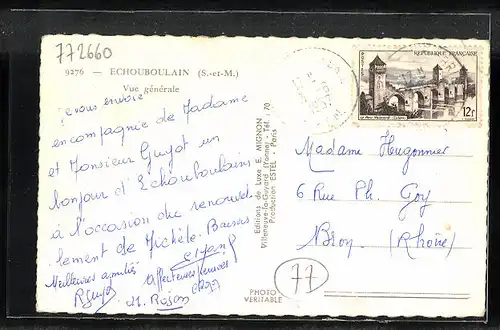 772660
9276 — ECHOUBOULAIN (S.-et-M.)
Vue générale
Je vous envoie
en compagnie de Madame
et Monsieur Guyot un
bonjour d'Echouboulains
à l'occasion du renouvel
lement de Michèle. Baisers
Meilleures amitiés
R Guyot
Affectueuses pensées
M.
Editions de Luxe E. MIGNON
Villeneuve-la-Guyard (Yonne) - Tél. : 70
Production ESTEL - Paris
PHOTO
VERITABLE
POSTES
REPUBLIQUE FRANÇAISE
12F
Madame Hugonnier
6 Rue Ph. Goy
Bron (Rhône)
77